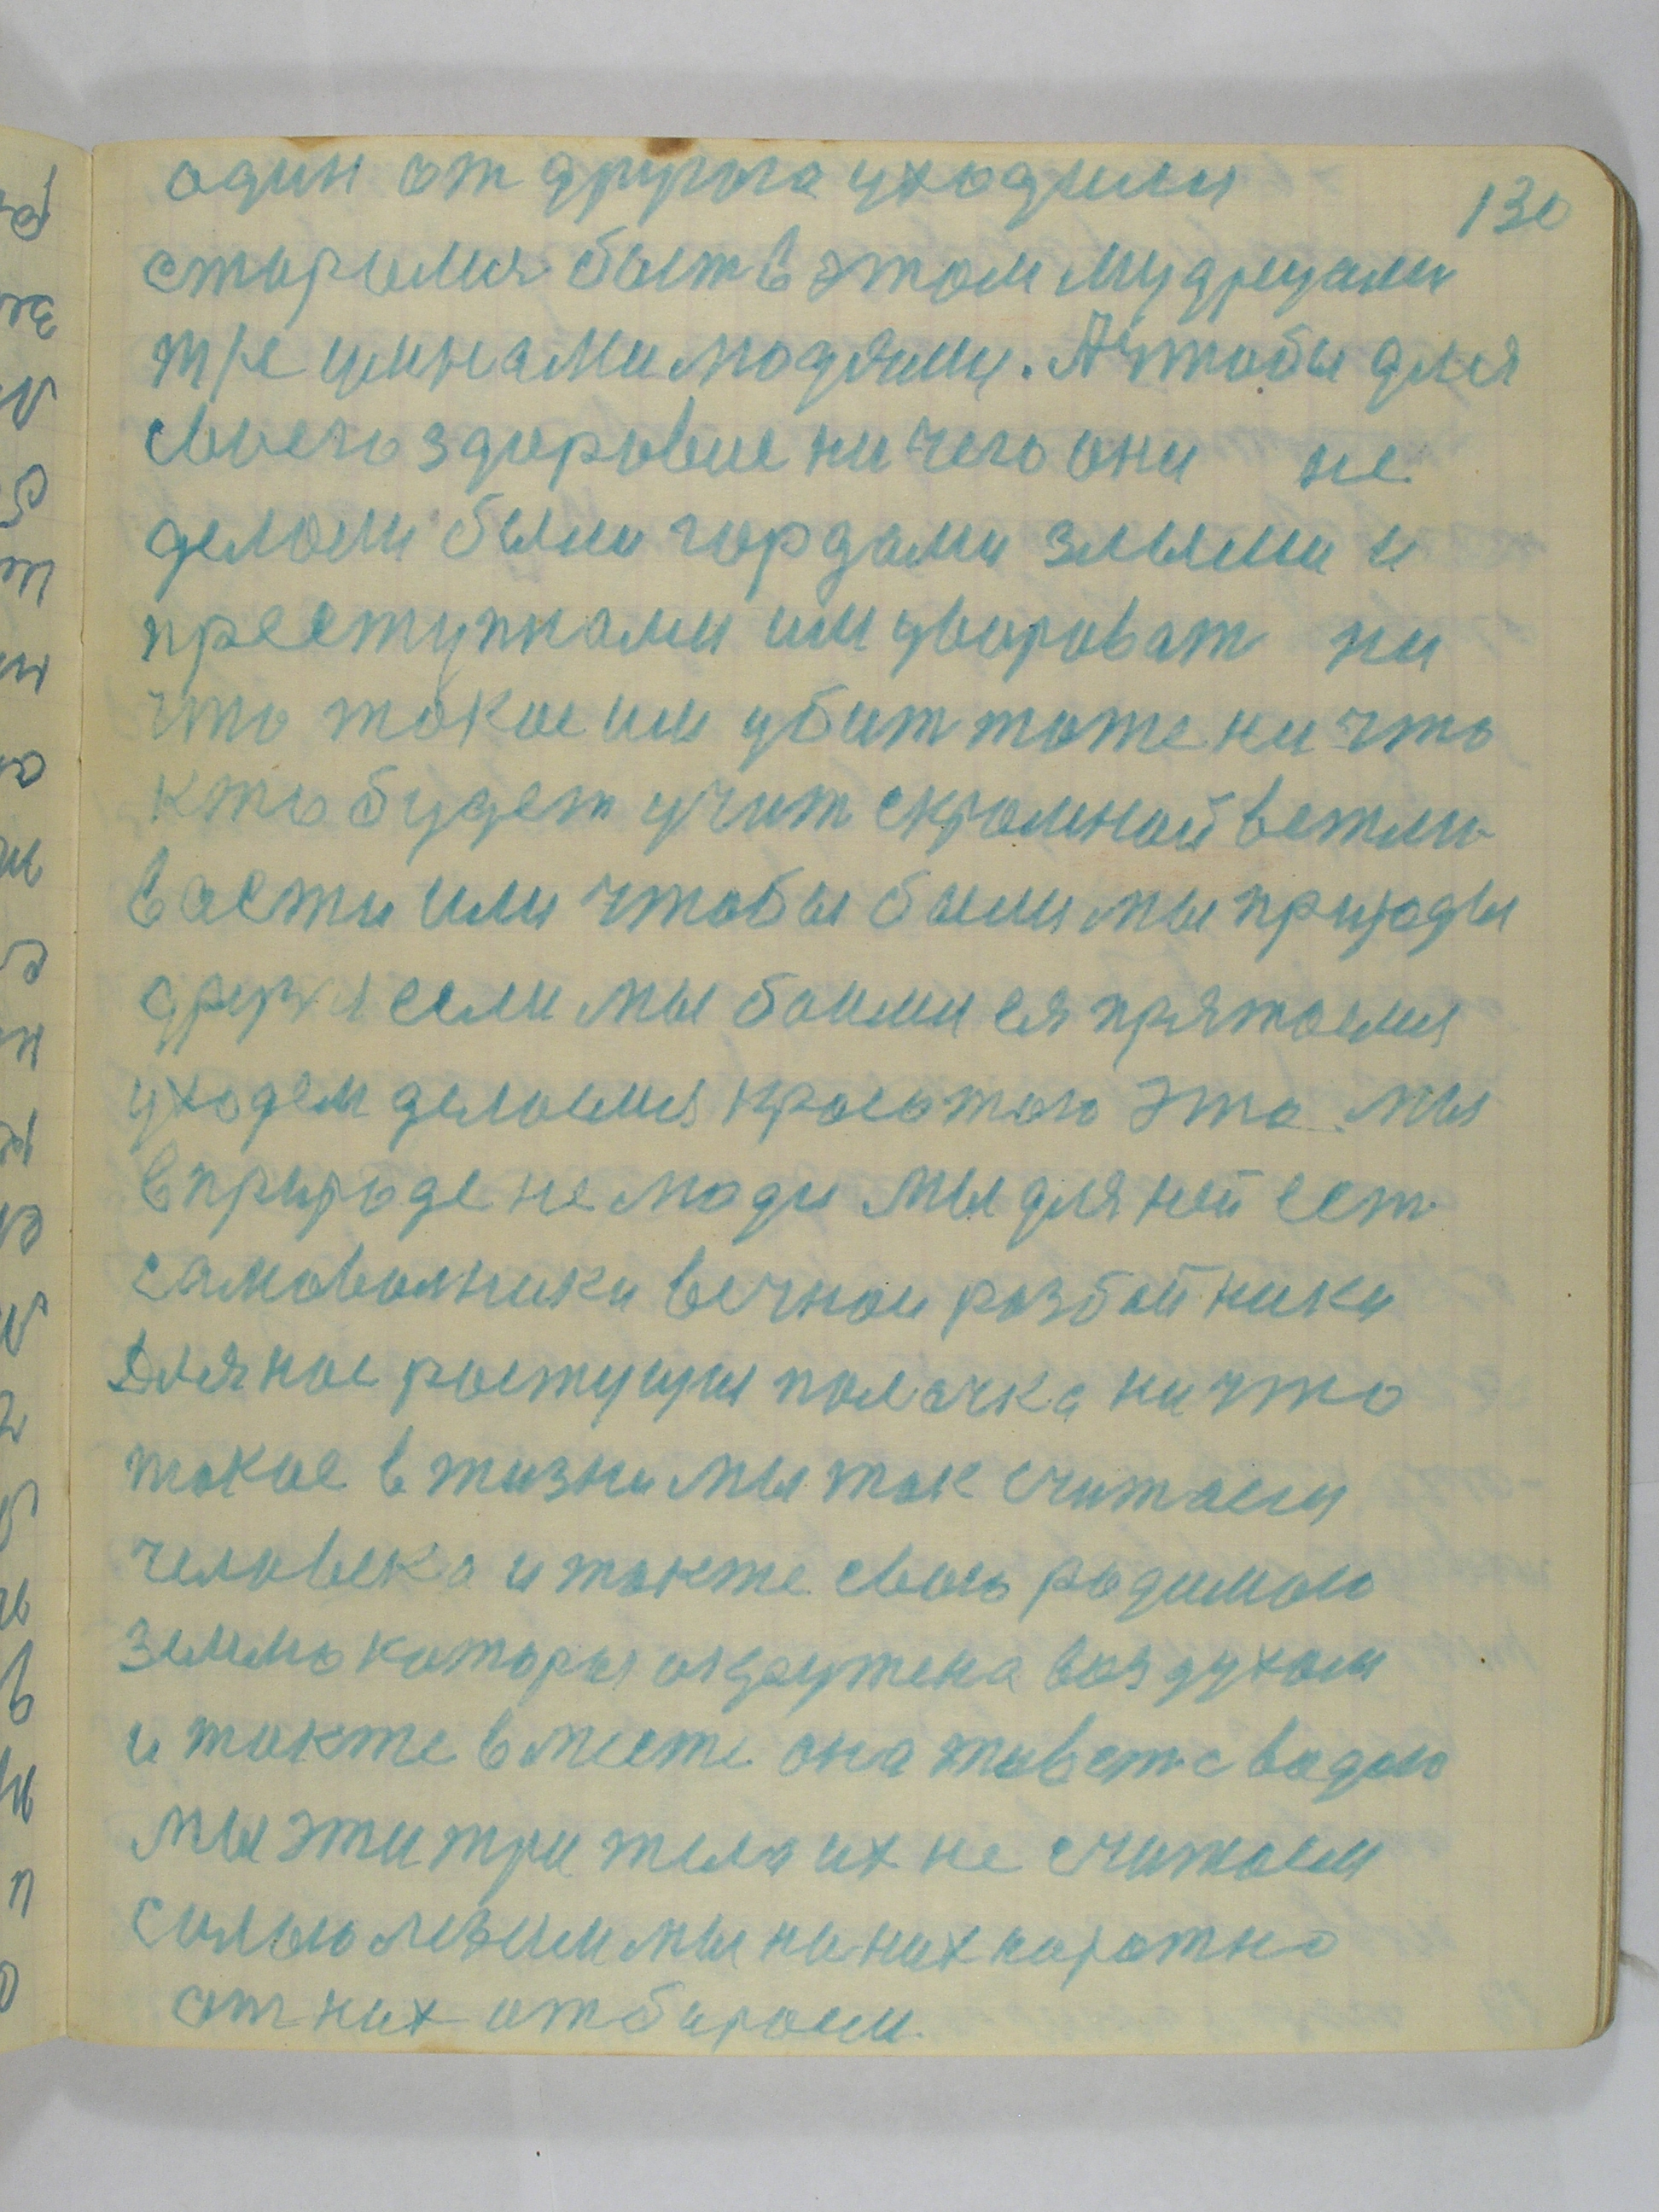 130
один от другога уходили
старалия быт в этом мудрецами
т/е умнами людями. А чтобы для
своего здоровие ни чего они не
делали были гордами злыми и
преступками им уворовать ни
что такое им убит тоже ни что
кто будет учит скромной ветли
вости или чтобы были мы природы
друзя если мы боимися прятоемя
уходем делоемя красотою это мы
в природе не люди мы для ней ест
самоволники вечнои разбойники
Для нас ростущия палачка ни что
такое в жизни мы так считаем
человека и также свою родимою
землю которыя окружена воздухом
и также вместе она живет с водою
мы эти три тела их не считаем
силою лезим мы на них каратко
от них отбираем